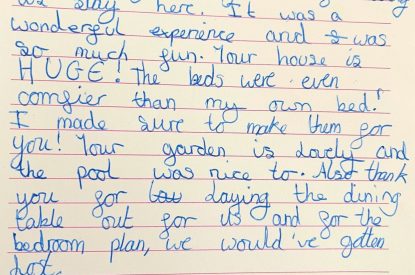 us stay here. It was a
wonderful experience and was
so much fun. Your house is
HUGE! The beds were even
comfier than my own bed!
I made sure to make them for
you! Your garden is lovely and
the pool was nice to. Also thank
you for laying the dining
table out for us and for the
bedroom plan, we would've gotten
lost.